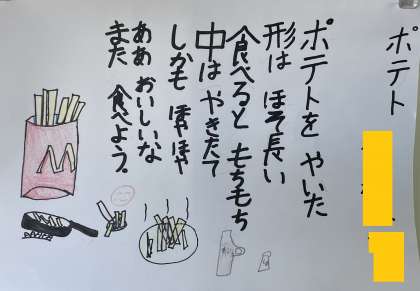 ポテト
ポテトを やいた
形は ほそ長い
食べると もちもち
中は やきたて
しかも ほやほや
ああ おいしいな
また 食べよう。
M